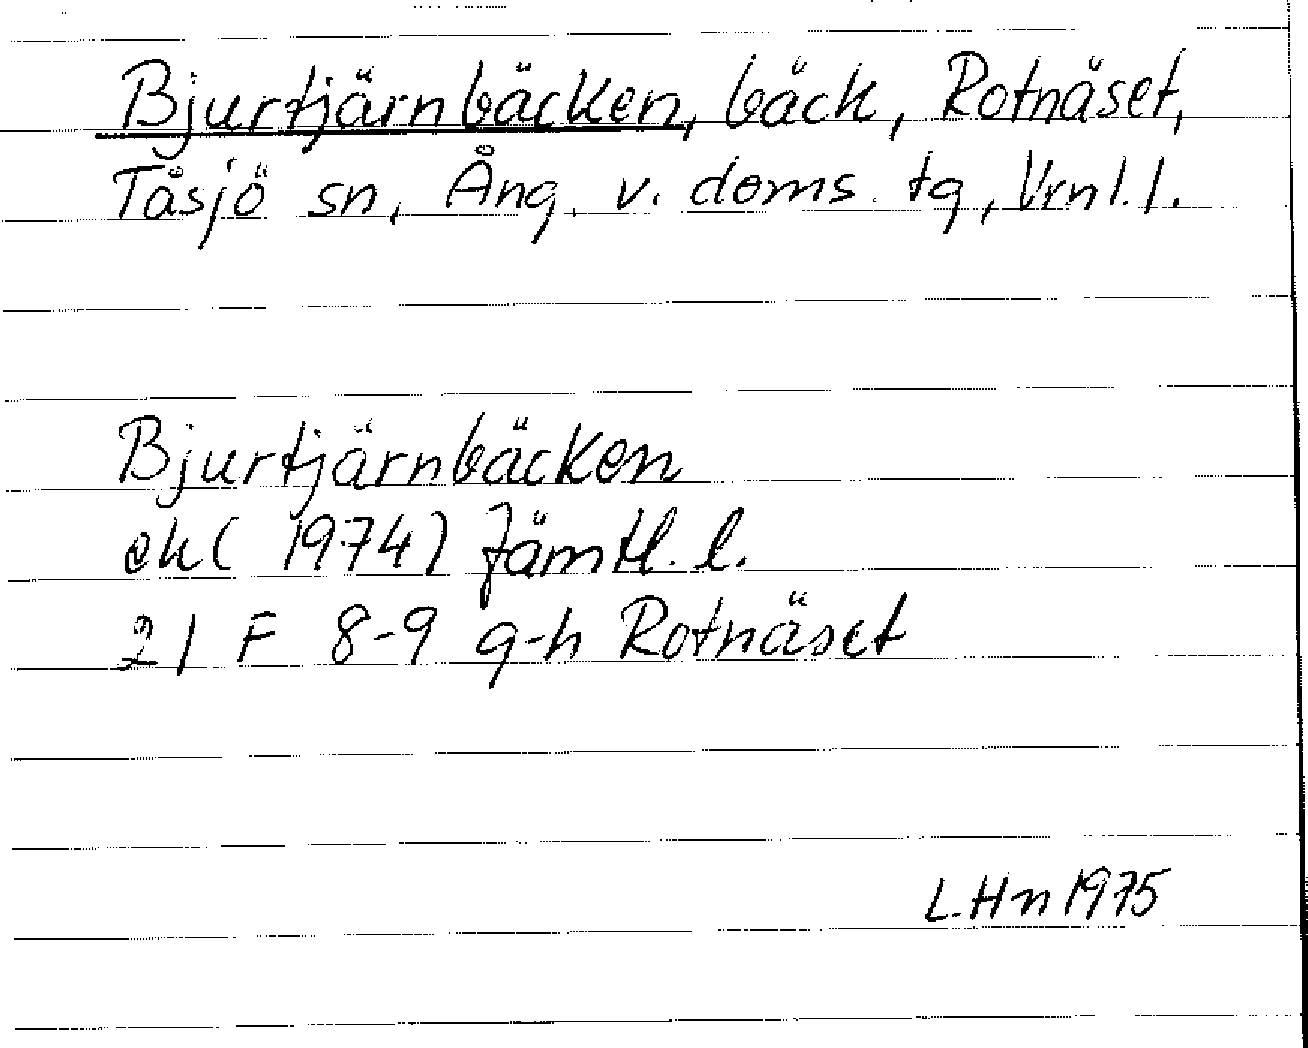 Bjurtjärnbäcken, bäck, Rotnäset,
Tåsjö sn, Ång. v. doms. tg, Vrnl. l.
Bjurtjärnbäcken
ek (1974) Jämtl. l.
21 F 8-9 g-h Rotnäset
L.Hn 1975